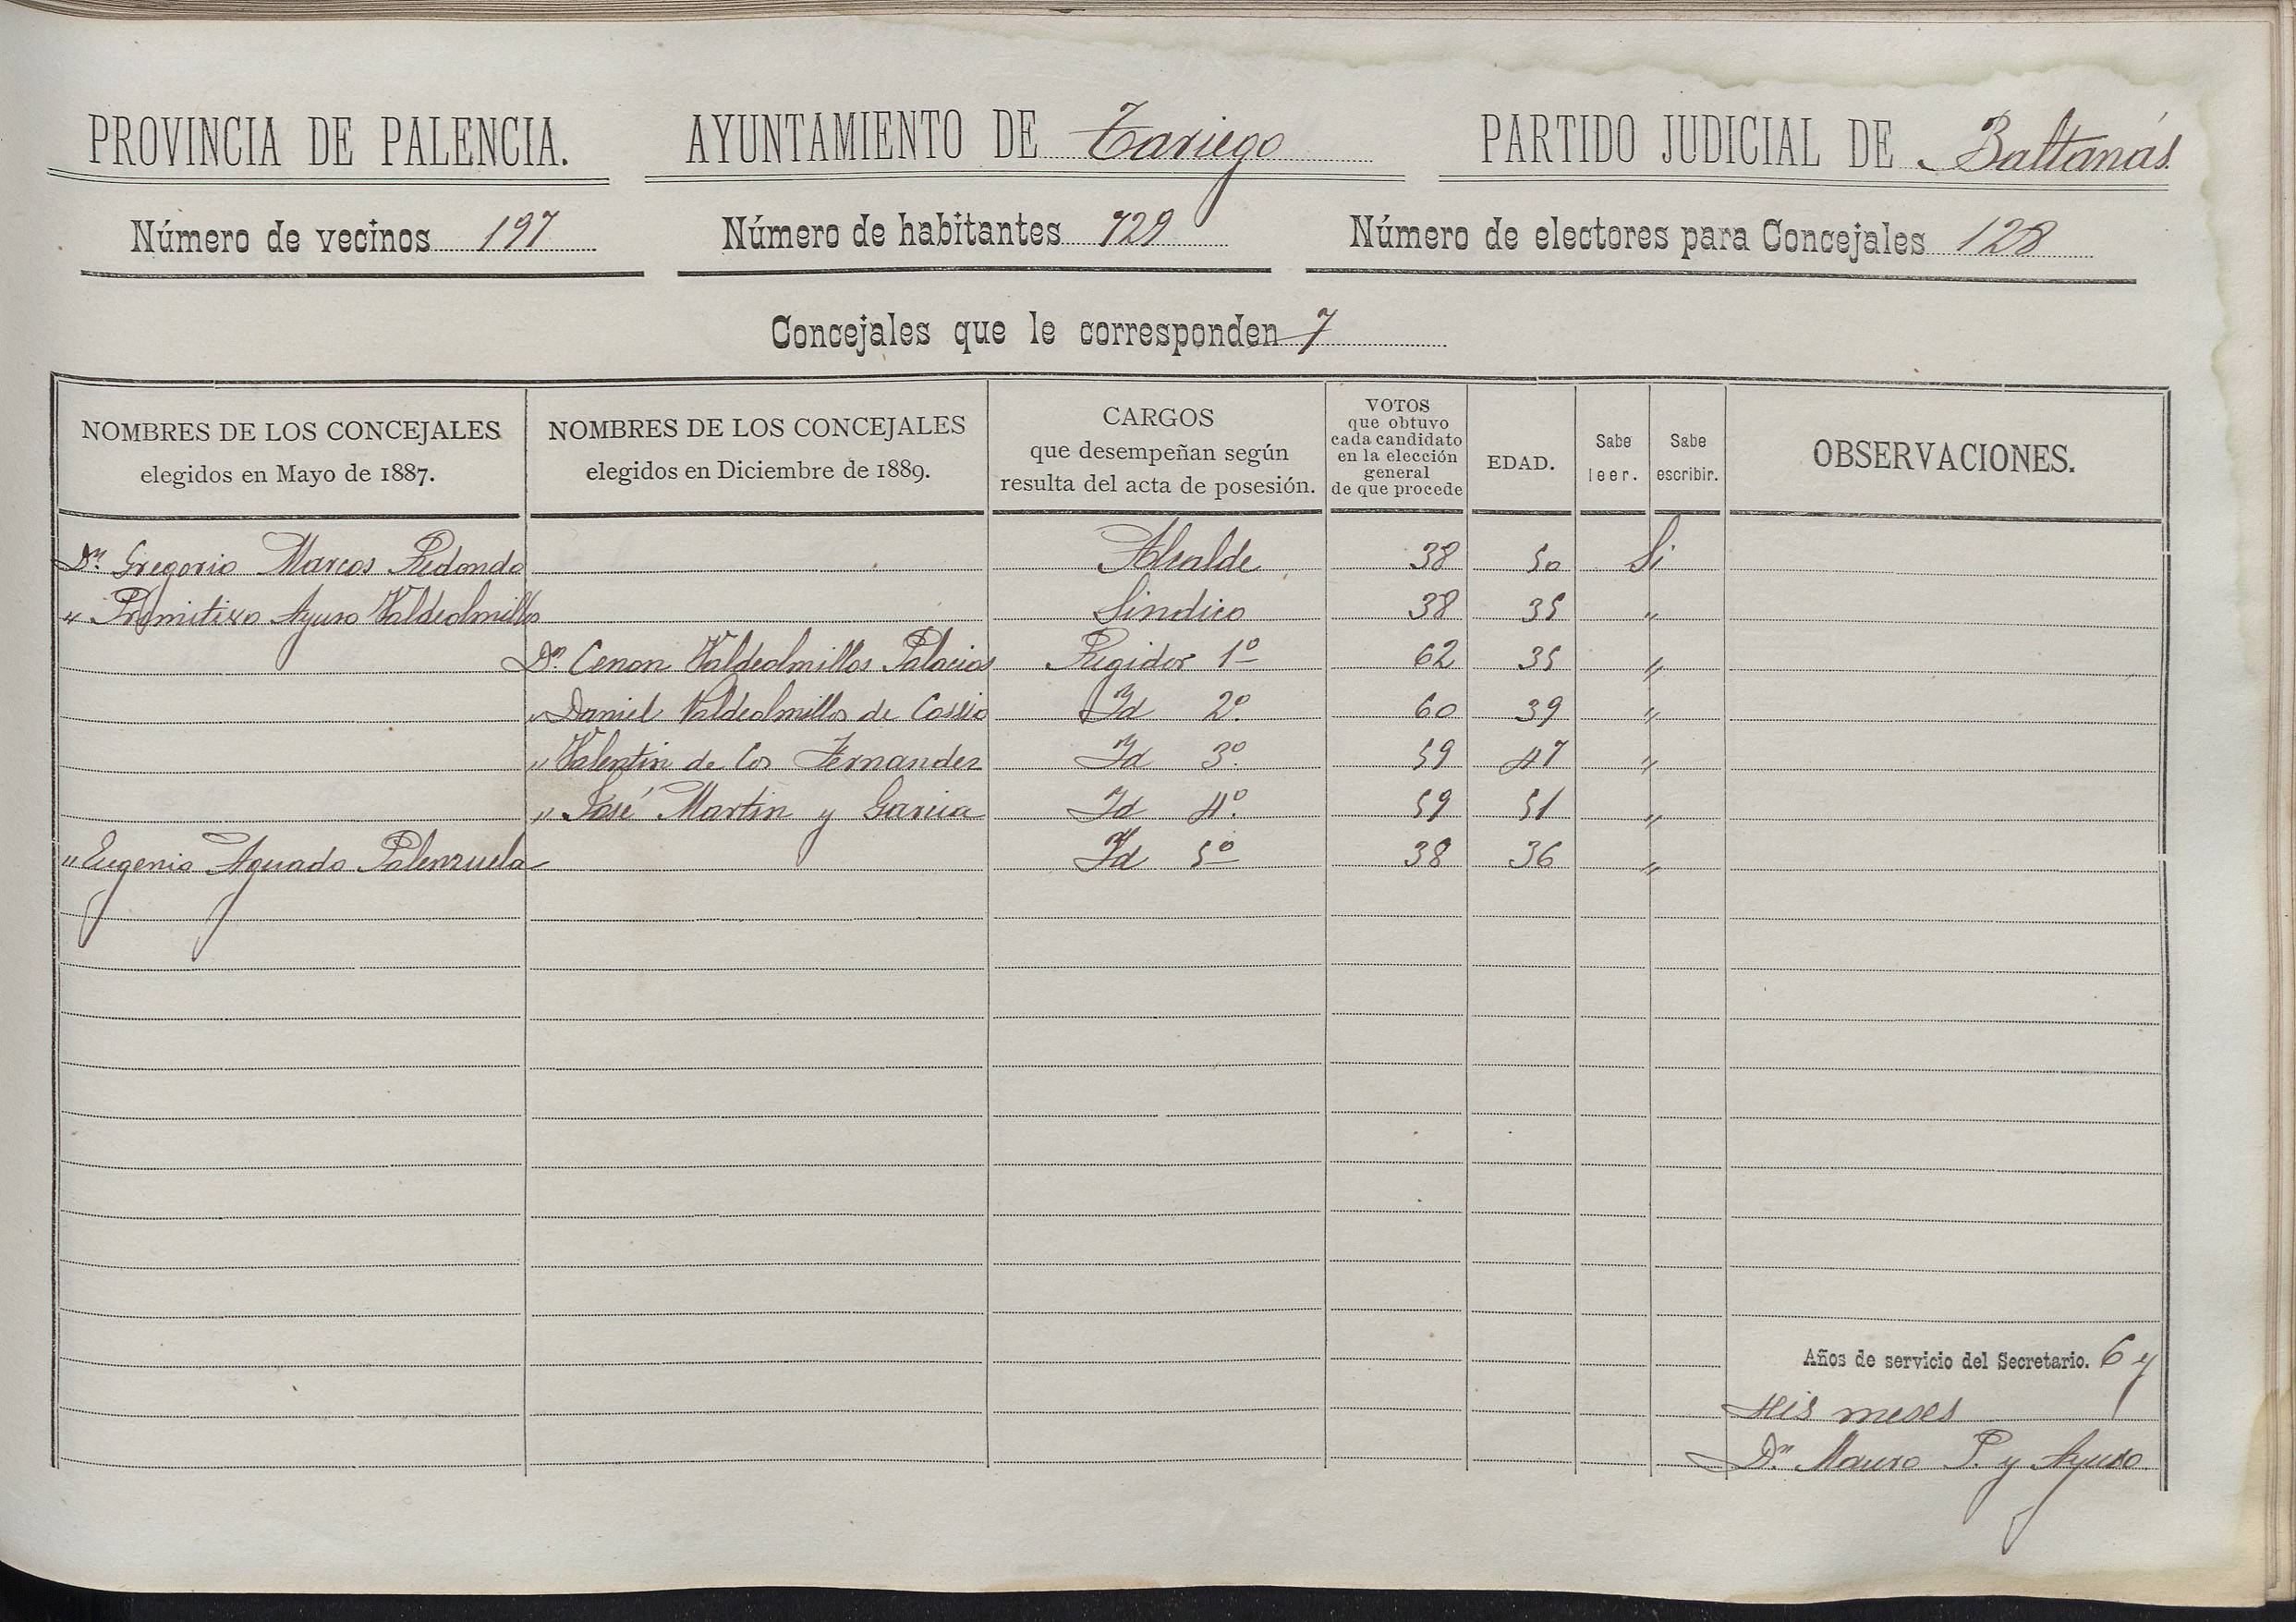 PROVINCIA DE PALENCIA. AYUNTAMIENTO DE Tariego PARTIDO JUDICIAL DE Baltanás.
Número de vecinos 197 Número de habitantes 729 Número de electores para Concejales 128
Concejales que le corresponden 7
NOMBRES DE LOS CONCEJALES
elegidos en Mayo de 1887.
NOMBRES DE LOS CONCEJALES
elegidos en Diciembre de 1889.
CARGOS
que desempeñan según
resulta del acta de posesión.
VOTOS
que obtuvo
cada candidato
en la elección
general
de que procede
EDAD.
Sabe
leer.
Sabe
escribir.
OBSERVACIONES.
Dn. Gregorio Marcos Redondo Alcalde 38 50 Si
" Primitivo Ayuso Valdeolmillos Sindico 38 35 "
Dn. Cenon Valdeolmillos Palacios Regidor 1º 62 35 "
" Daniel Valdeolmillos de Cossio Id 2º. 60 39 "
" Valentin de Cos Fernandez Id 3º. 59 47 "
" José Martin y Garcia Id 4º. 59 51 "
" Eugenio Aguado Palenzuela Id 5º 38 36 "
Años de servicio del Secretario. 6 y
seis meses
Dn. Mauro P. y Ayuso